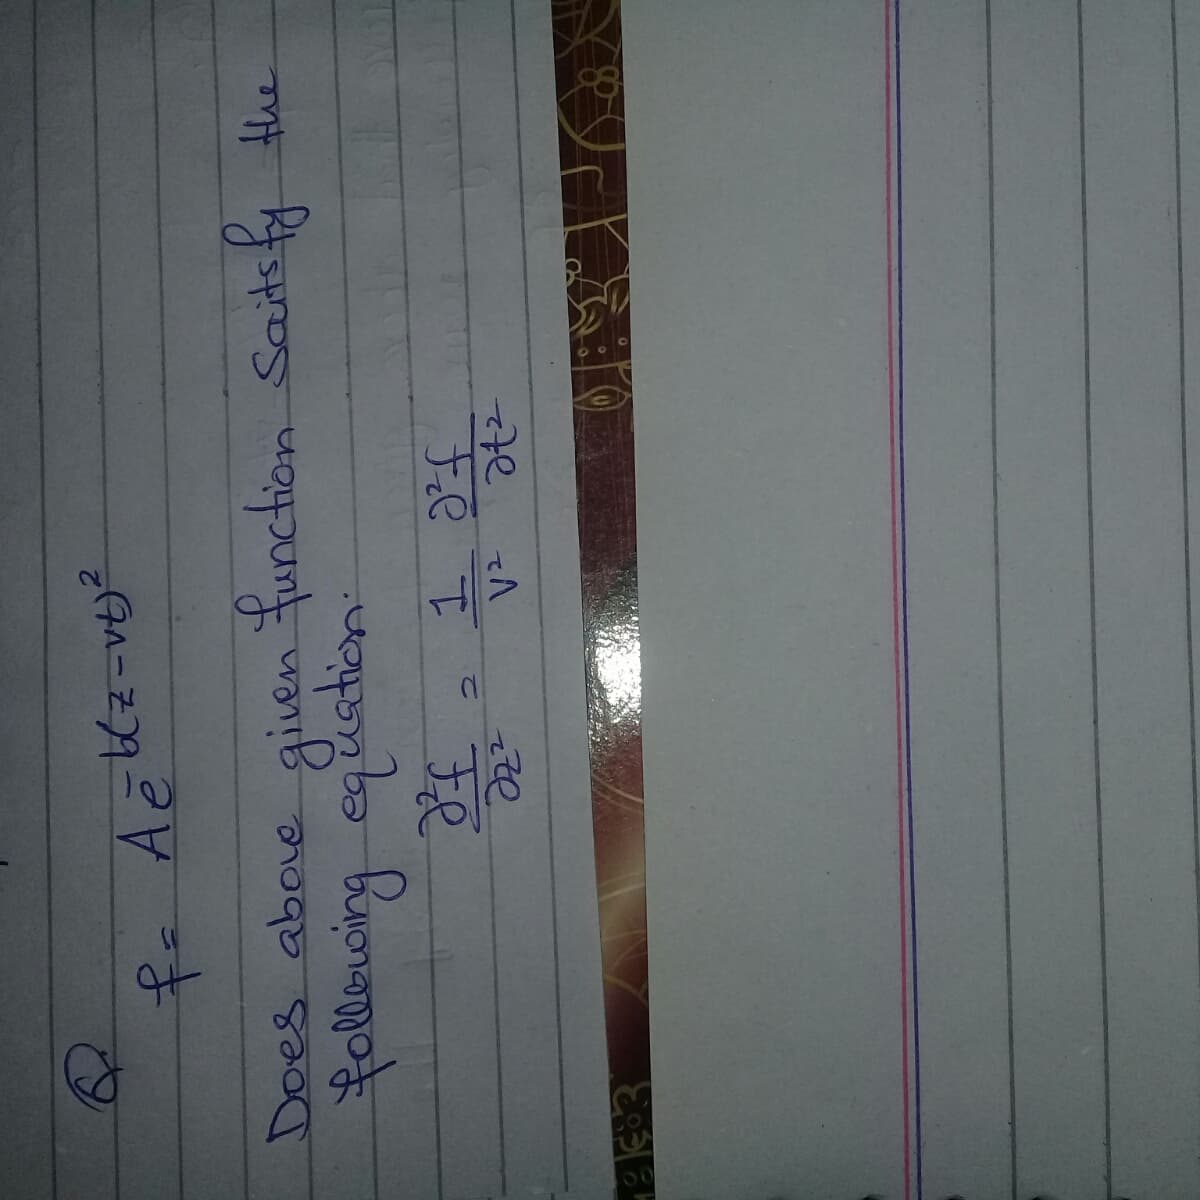 Q.
f = A e^-b(z-vt)^2
Does above given function Saitsfy the
following equation.
∂²f/∂z² = 1/v² ∂²f/∂t²